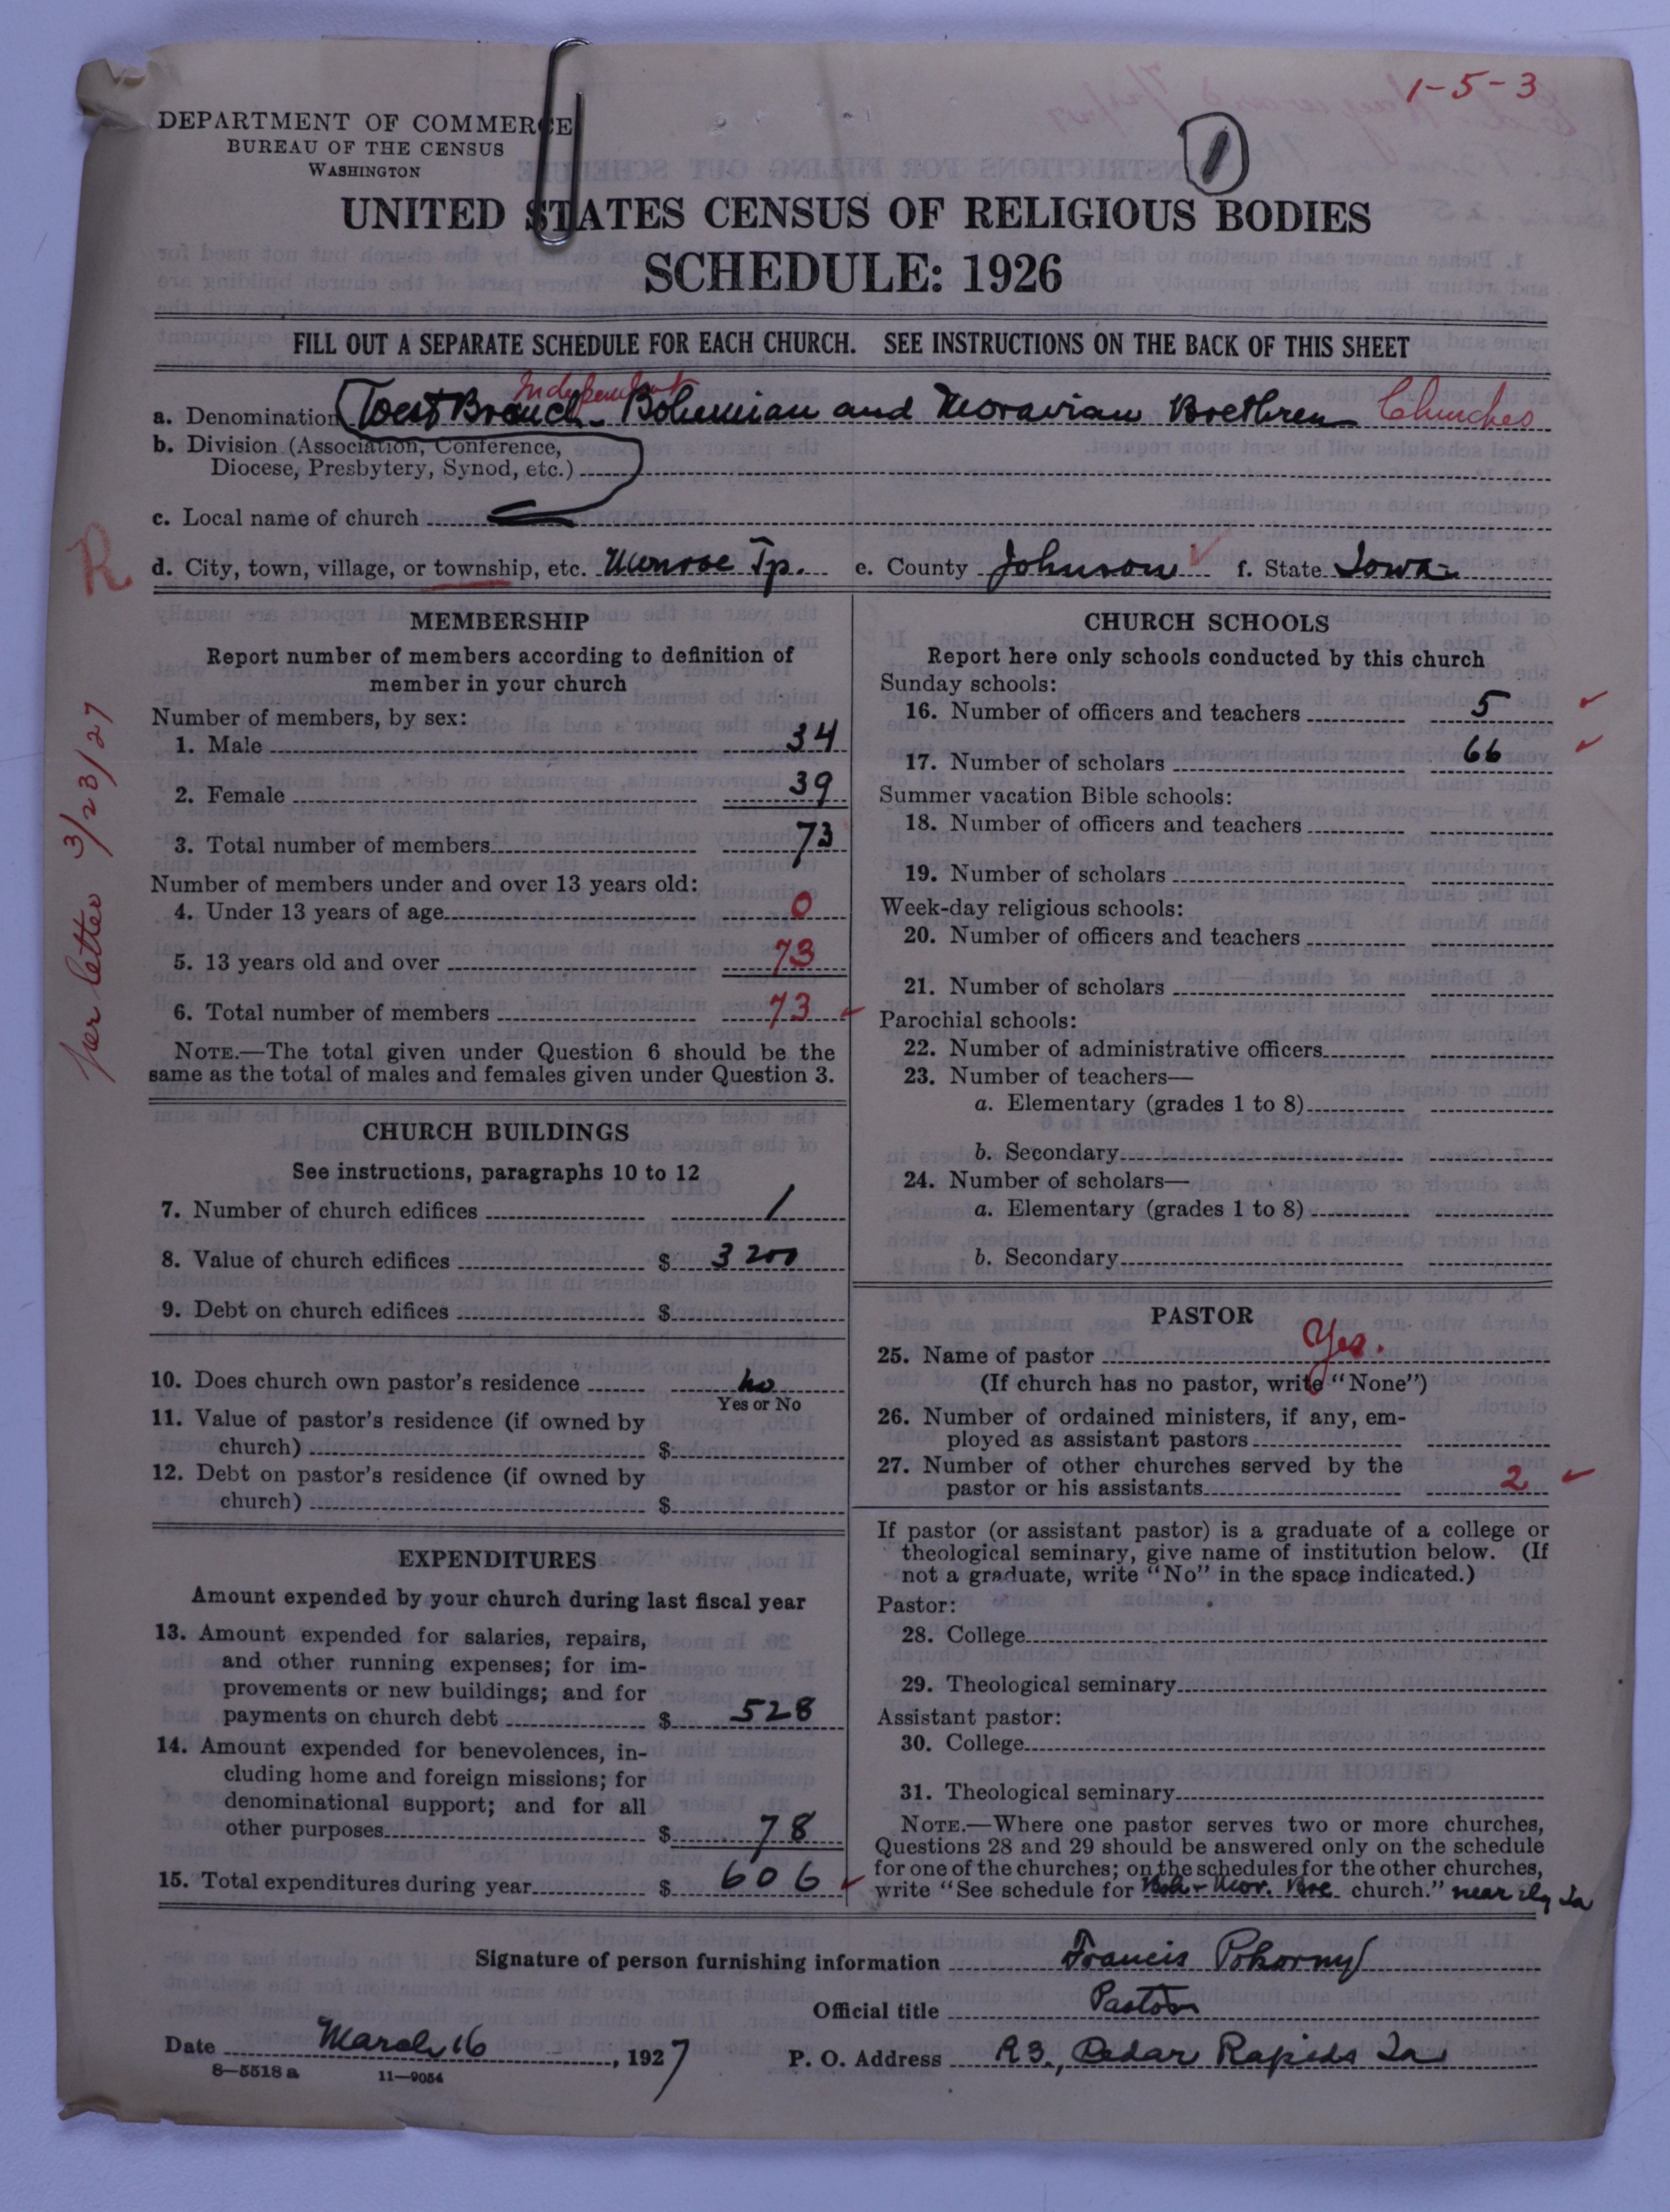 1-5-3
DEPARTMENT OF COMMERCE
BUREAU OF THE CENSUS
WASHINGTON
1
UNITED STATES CENSUS OF RELIGIOUS BODIES
SCHEDULE: 1926
FILL OUT A SEPARATE SCHEDULE FOR EACH CHURCH. SEE INSTRUCTIONS ON THE BACK OF THIS SHEET
Independent
a. Denomination West Branch - Bohemian and Moravian Brethren Churches
b. Division (Association, Conference,
Diocese, Presbytery, Synod, etc.)
c. Local name of church
d. City, town, village, or township, etc. Monroe Tp. e. County Johnson f. State Iowa
R
per letter 3/23/27
MEMBERSHIP
Report number of members according to definition of
member in your church
Number of members, by sex:
1. Male 34
2. Female 39
3. Total number of members 73
Number of members under and over 13 years old:
4. Under 13 years of age 0
5. 13 years old and over 73
6. Total number of members 73
NOTE.—The total given under Question 6 should be the
same as the total of males and females given under Question 3.
CHURCH BUILDINGS
See instructions, paragraphs 10 to 12
7. Number of church edifices 1
8. Value of church edifices $ 3200
9. Debt on church edifices $
10. Does church own pastor's residence no
Yes or No
11. Value of pastor's residence (if owned by
church) $
12. Debt on pastor's residence (if owned by
church) $
EXPENDITURES
Amount expended by your church during last fiscal year
13. Amount expended for salaries, repairs,
and other running expenses; for im-
provements or new buildings; and for
payments on church debt $ 528
14. Amount expended for benevolences, in-
cluding home and foreign missions; for
denominational support; and for all
other purposes $ 78
15. Total expenditures during year $ 606
CHURCH SCHOOLS
Report here only schools conducted by this church
Sunday schools:
16. Number of officers and teachers 5
17. Number of scholars 66
Summer vacation Bible schools:
18. Number of officers and teachers
19. Number of scholars
Week-day religious schools:
20. Number of officers and teachers
21. Number of scholars
Parochial schools:
22. Number of administrative officers
23. Number of teachers—
a. Elementary (grades 1 to 8)
b. Secondary
24. Number of scholars—
a. Elementary (grades 1 to 8)
b. Secondary
PASTOR
25. Name of pastor Yes.
(If church has no pastor, write "None")
26. Number of ordained ministers, if any, em-
ployed as assistant pastors
27. Number of other churches served by the
pastor or his assistants 2
If pastor (or assistant pastor) is a graduate of a college or
theological seminary, give name of institution below. (If
not a graduate, write "No" in the space indicated.)
Pastor:
28. College
29. Theological seminary
Assistant pastor:
30. College
31. Theological seminary
NOTE.—Where one pastor serves two or more churches,
Questions 28 and 29 should be answered only on the schedule
for one of the churches; on the schedules for the other churches,
write "See schedule for Boh - Mor. Bre church." near Ely Ia
Signature of person furnishing information Francis Pokorny
Official title Pastor
Date March 16, 1927 P. O. Address R3., Cedar Rapids Ia
8—5518 a 11—9054